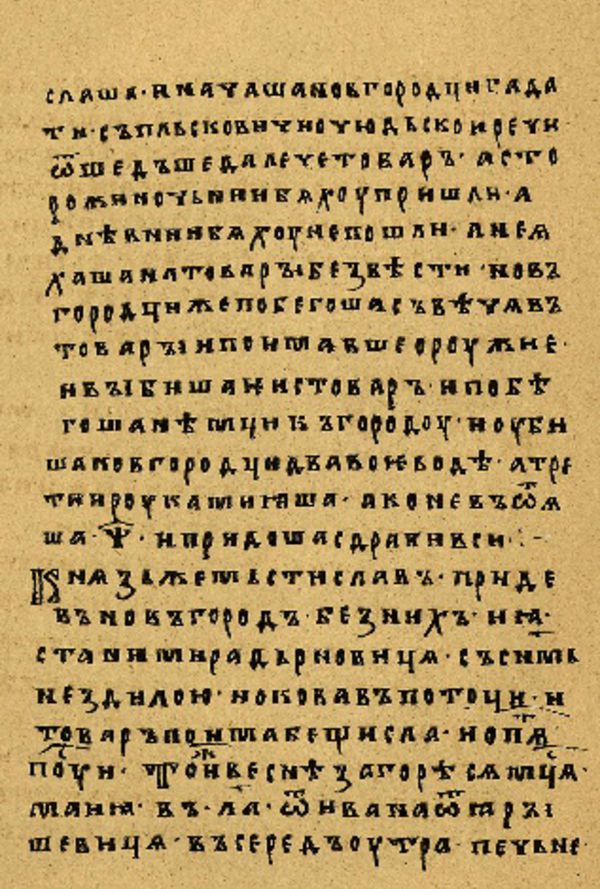 слаша · и начаша новгородци гадати
ти · съ пльсковичи о чюдьскои рѣчи
ѿшедъше далече товаръ · а сто
рожи ночьнии бяхоу пришли · а
дневнии бяхоу не пошли · а ная
хаша на товары без вѣсти · новъ
городци же побегоша съ вѣчя въ
товары и поимавше ороужие ·
и выбиша и ис товаръ · и побѣ
гоша нѣмци къ городоу · и оуби
ша новгородци два воѥводѣ · а тре
тии роукама яша · а коневъ ѿя
ша · ѱ · и придоша сдрави вьси ·
Князь же мьстиславъ · приде
въ новъгородъ · без нихъ · и я
ста ними радърновиця · съ сими
нездилою · и оковавъ поточи · и
товаръ поима бещисла · и опя
поусти · Томь же веснѣ загорѣся мця
маия · въ · ла · ѿ ивана ѿ яры
шевиця · въ середъ оутра · печьне